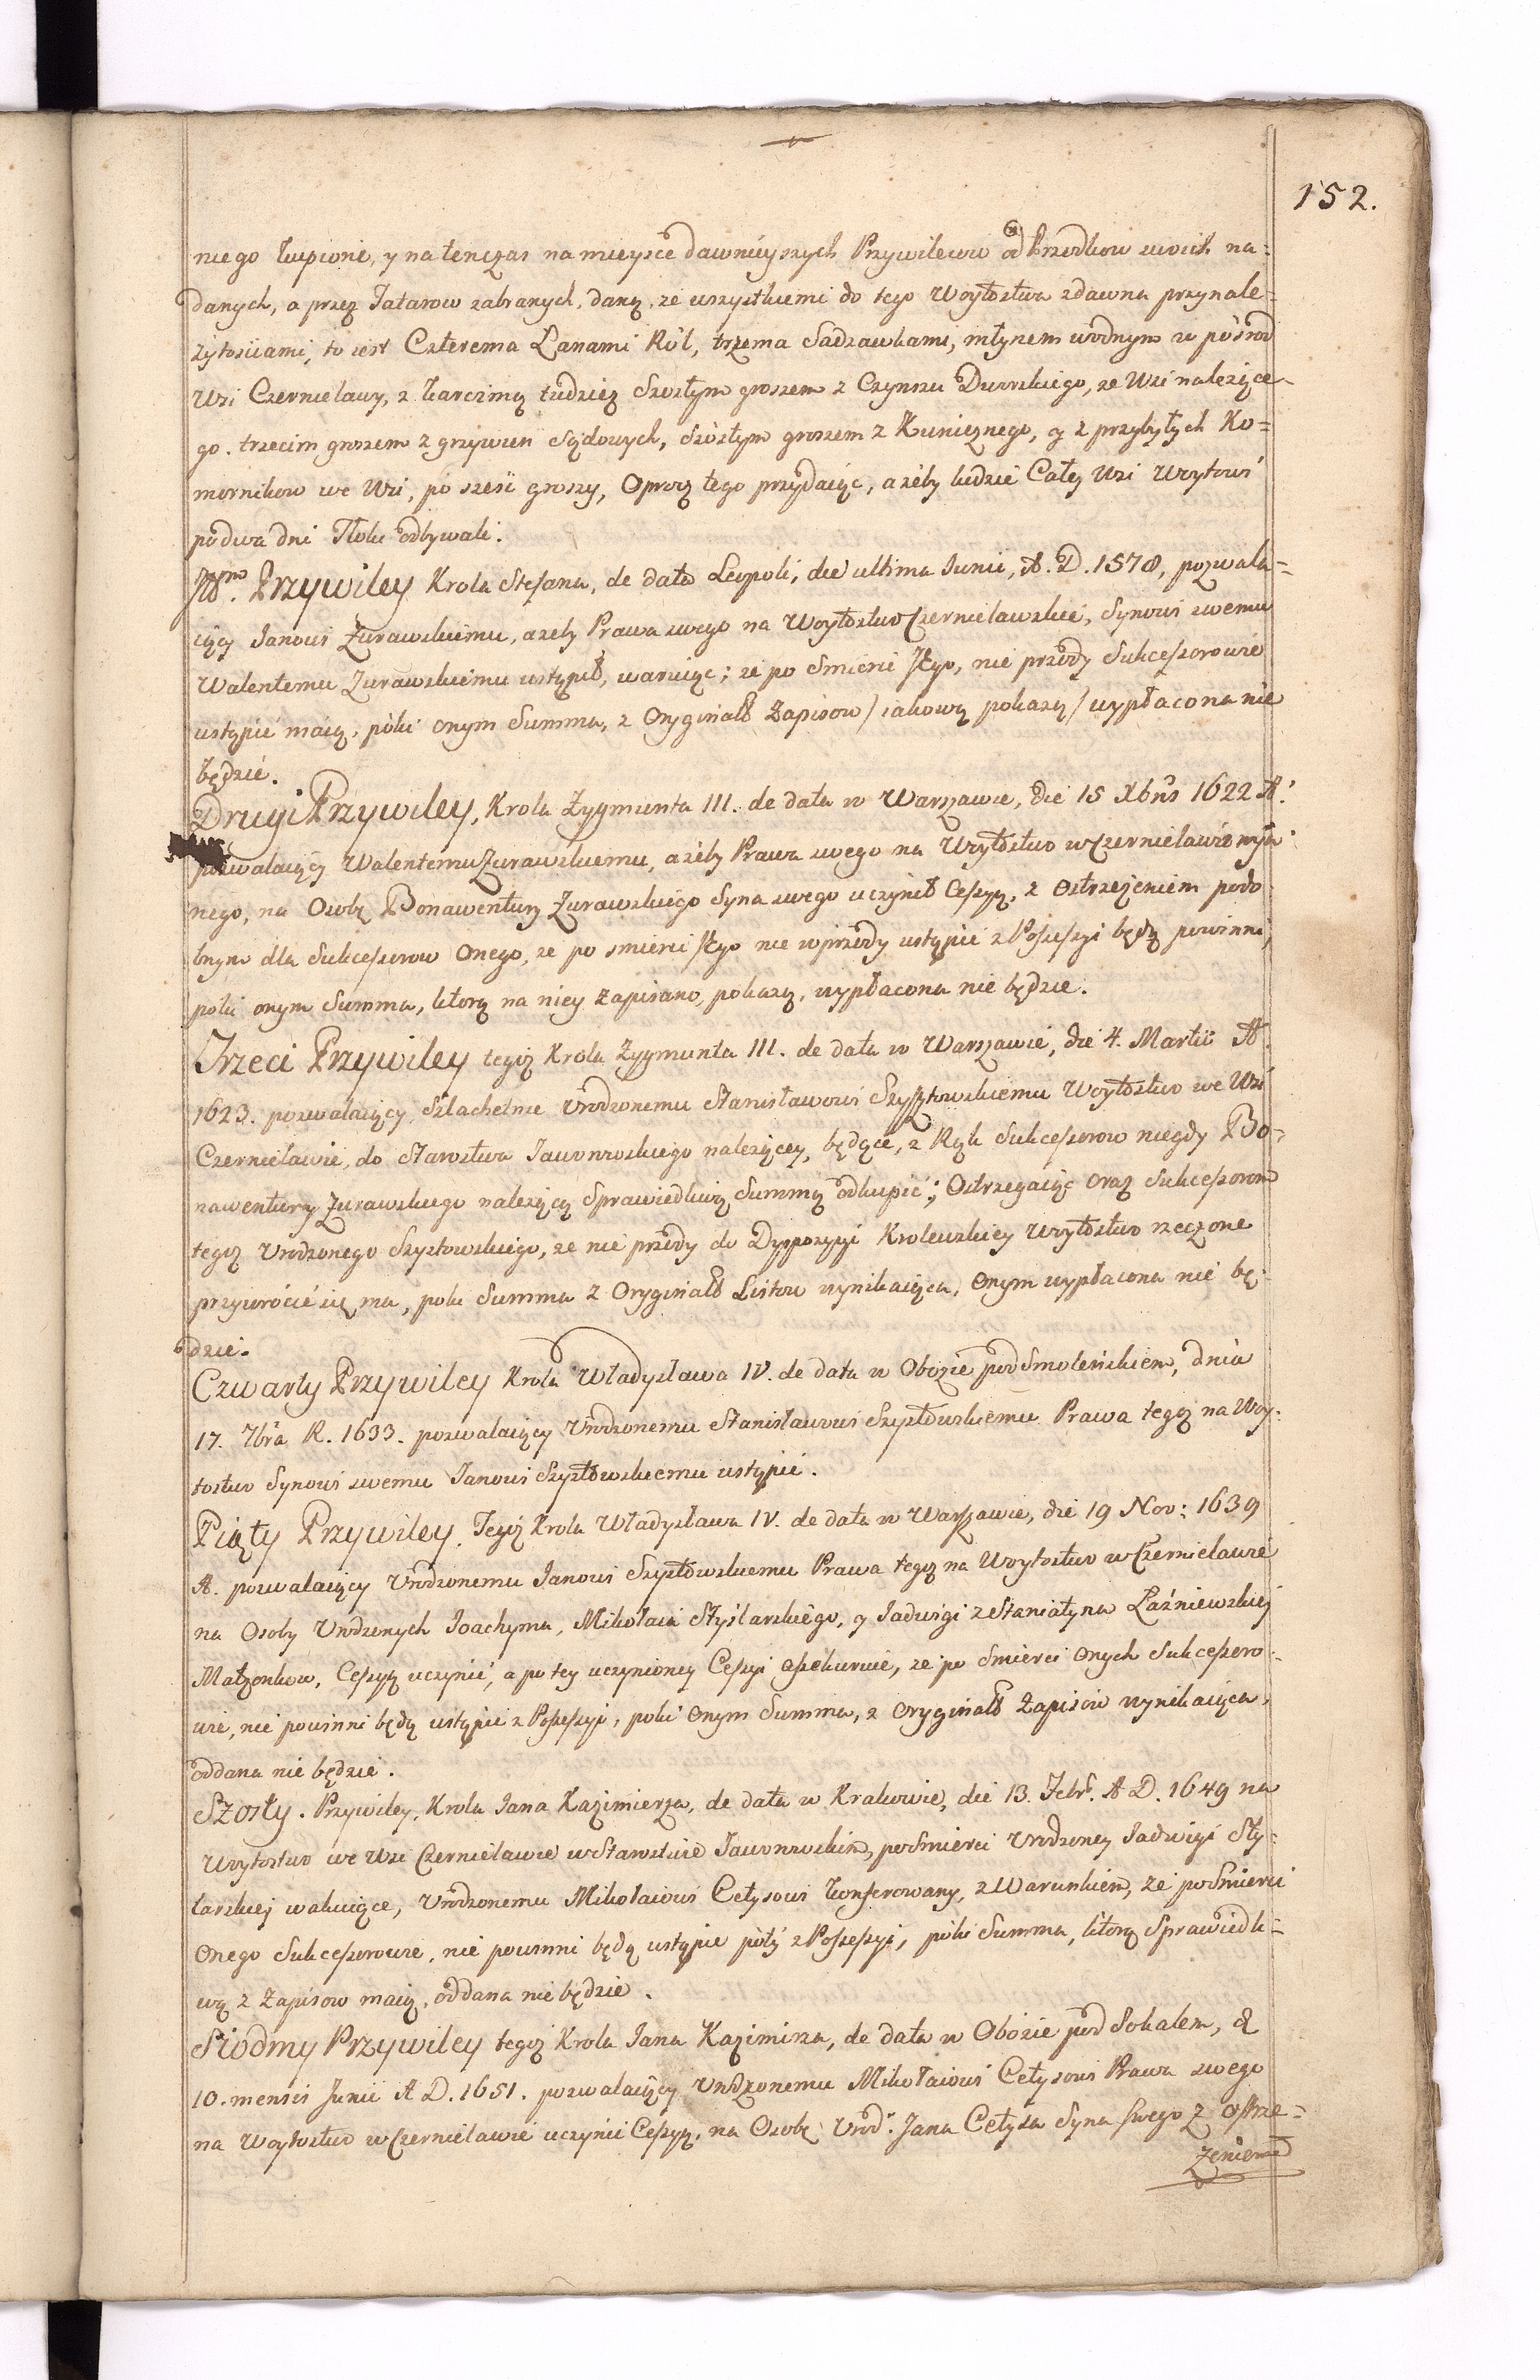 152.
niego kupione, y na tenczas na mieysce dawnieyszych Przywilewu od Przodkow swoich na=
danych, a przez Tatarow zabranych, dany, ze wszystkiemi do tego Woytostwa zdawna przynale=
żytościami, to iest Czterema Łanami Ról, trzema Sadzawkami, młynem wodnym w pośrod
Wsi Czernielawy, z karczmą tudzież Szostym groszem z Czynszu Dworskiego, ze Wsi należące=
go. trzecim groszem z grzywien Sądowych, szóstym groszem z Kunicznego, y z przybyłych Ko=
mornikow we Wsi, po sześć groszy, Oprocz tego przydaiąc, ażeby ludzie Całey Wsi Woytowi
po dwa dni Tłoki odbywali.
Przywiley Krola Stefana, de data Leopoli, die ultima Junii, A. D. 1578, pozwala=
iący Janowi Zurawskiemu, ażeby Prawa swego na Woytostwo Czernielawskie, Synowi swemu
Walentemu Zurawskiemu ustąpił, waruiąc; że po Smierci Jego, nie przody Sukcessorowie
ustąpić maią, póki onym Summa, z Oryginałł Zapisow / iakową pokażą / wypłacona nie
będzie.
Drugi Przywiley, Krola Zygmunta III. de data w Warszawie, die 15 Xbris 1622 A.
pozwalaiący Walentemu Zurawskiemu, ażeby Prawa swego na Woytostwo w Czernielawie
nego, na Osobę Bonawentury Zurawskiego Syna swego uczynił Cessyą, z Ostrzeżeniem podo
bnym dla Sukcessorow Onego, że po smierci Jego nie wprzody ustąpić z Possessyi będą powinni,
poki onym Summa, ktorą na niey zapisano, pokażą, wypłacona nie będzie.
Trzeci Przywiley tegoż Krola Zygmunta III. de data w Warszawie, die 4. Martii A.
1623. pozwalaiący Szlachetnie Urodzonemu Stanisławowi Szyszkowskiemu Woytostwo we Wsi
Czernielawie, do Starostwa Jaworowskiego należącey, będące, z Rąk Sukcessorow niegdy Bo=
nawentury Zurawskiego należącą Sprawiedliwą Summą odkupić; Ostrzegaiąc oraz Sukcessorom
tegoż Urodzonego Szysztowskiego, że nie przody do Dyspozycyi Krolewskiey Woytostwo rzeczone
przywrócić się ma, poki Summa z Oryginałł Listow wynikaiąca, Onym wypłacona nie bę=
dzie.
Czwarty Przywiley Krola Władysława IV. de data w Obozie pod Smoleńskiem, dnia
17. 7bra R. 1633. pozwalaiący Urodzonemu Stanisławowi Szysztowskiemu Prawa tegoż na Woy=
tostwo Synowi swemu Janowi Szysztowskiemu ustąpić.
Piąty Przywiley, Tegoż Krola Władysława IV. de data w Warszawie, die 19 Nov: 1639
A. pozwalaiący Urodzonemu Janowi Szysztowskiemu Prawa tegoż na Woytostwo w Czernielawie
na Osoby Urodzonych Joachyma, Mikołaia Styślarskiego, y Jadwigi z Staniatyna Łaźniewskiej
Małżonkow, Cessyą uczynić, a po tey uczynioney Cessyi assekuruie, że po Smierci Onych Sukcessoro=
wie, nie powinni będą ustąpić z Possessyi, poki Onym Summa, z Oryginałł Zapisow wynikaiąca,
oddana nie będzie.
Szosty. Przywiley, Krola Jana Kazimierza, de data w Krakowie, die 13. Febr. A D. 1649 na
Woytostwo we Wsi Czernielawie w Starostwie Jaworowskim, po Smierci Urodzoney Jadwigi Sty=
larskiej wakuiące, Urodzonemu Mikołaiowi Cetysowi konferowany, z Warunkiem, że po Smierci
Onego Sukcessorowie, nie powinni będą ustąpić póty z Possessyi, póki Summa, ktorą Sprawiedli=
wą z Zapisow maią, oddana nie będzie.
Siodmy Przywiley tegoż Krola Jana Kazimirza, de data w Obozie pod Sokalem, d
10. mensis Junii A D. 1651. pozwalaiący Urodzonemu Mikołaiowi Cetysowi Prawa swego
na Woytostwo w Czernielawie uczynić Cessyą, na Osobę Urod. Jana Cetysa Syna swego z ostrze=
żeniem